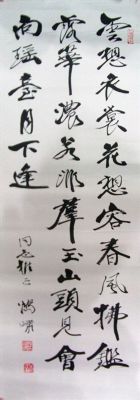 雲想衣裳花想容春風拂檻
露華濃若非羣玉山頭見會
向瑤臺月下逢